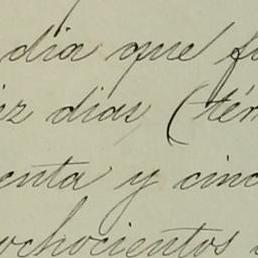 dia que fu
iez dias (tér
enta y cinc
ochocientos